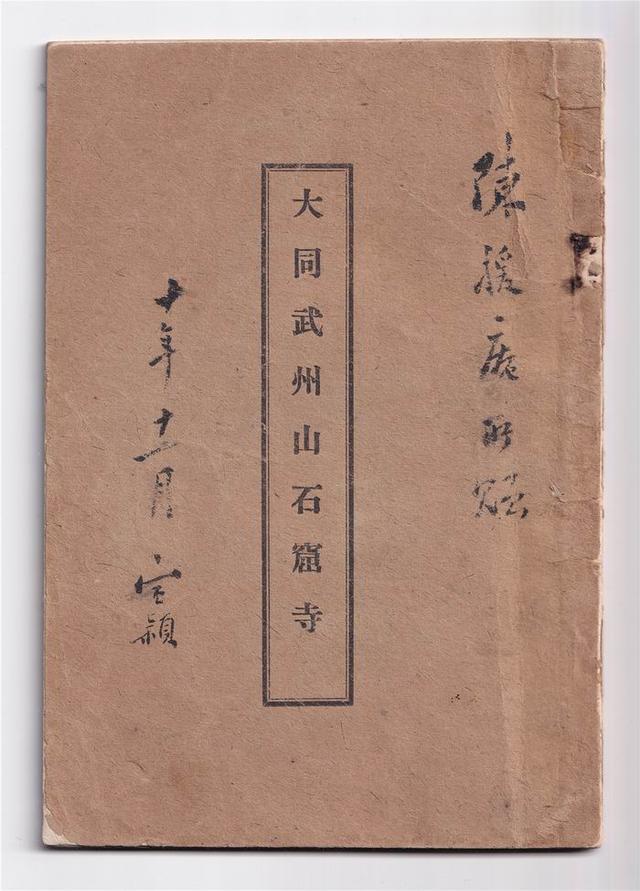 陳援庵所贈
大同武州山石窟寺
十年十一月 宣穎